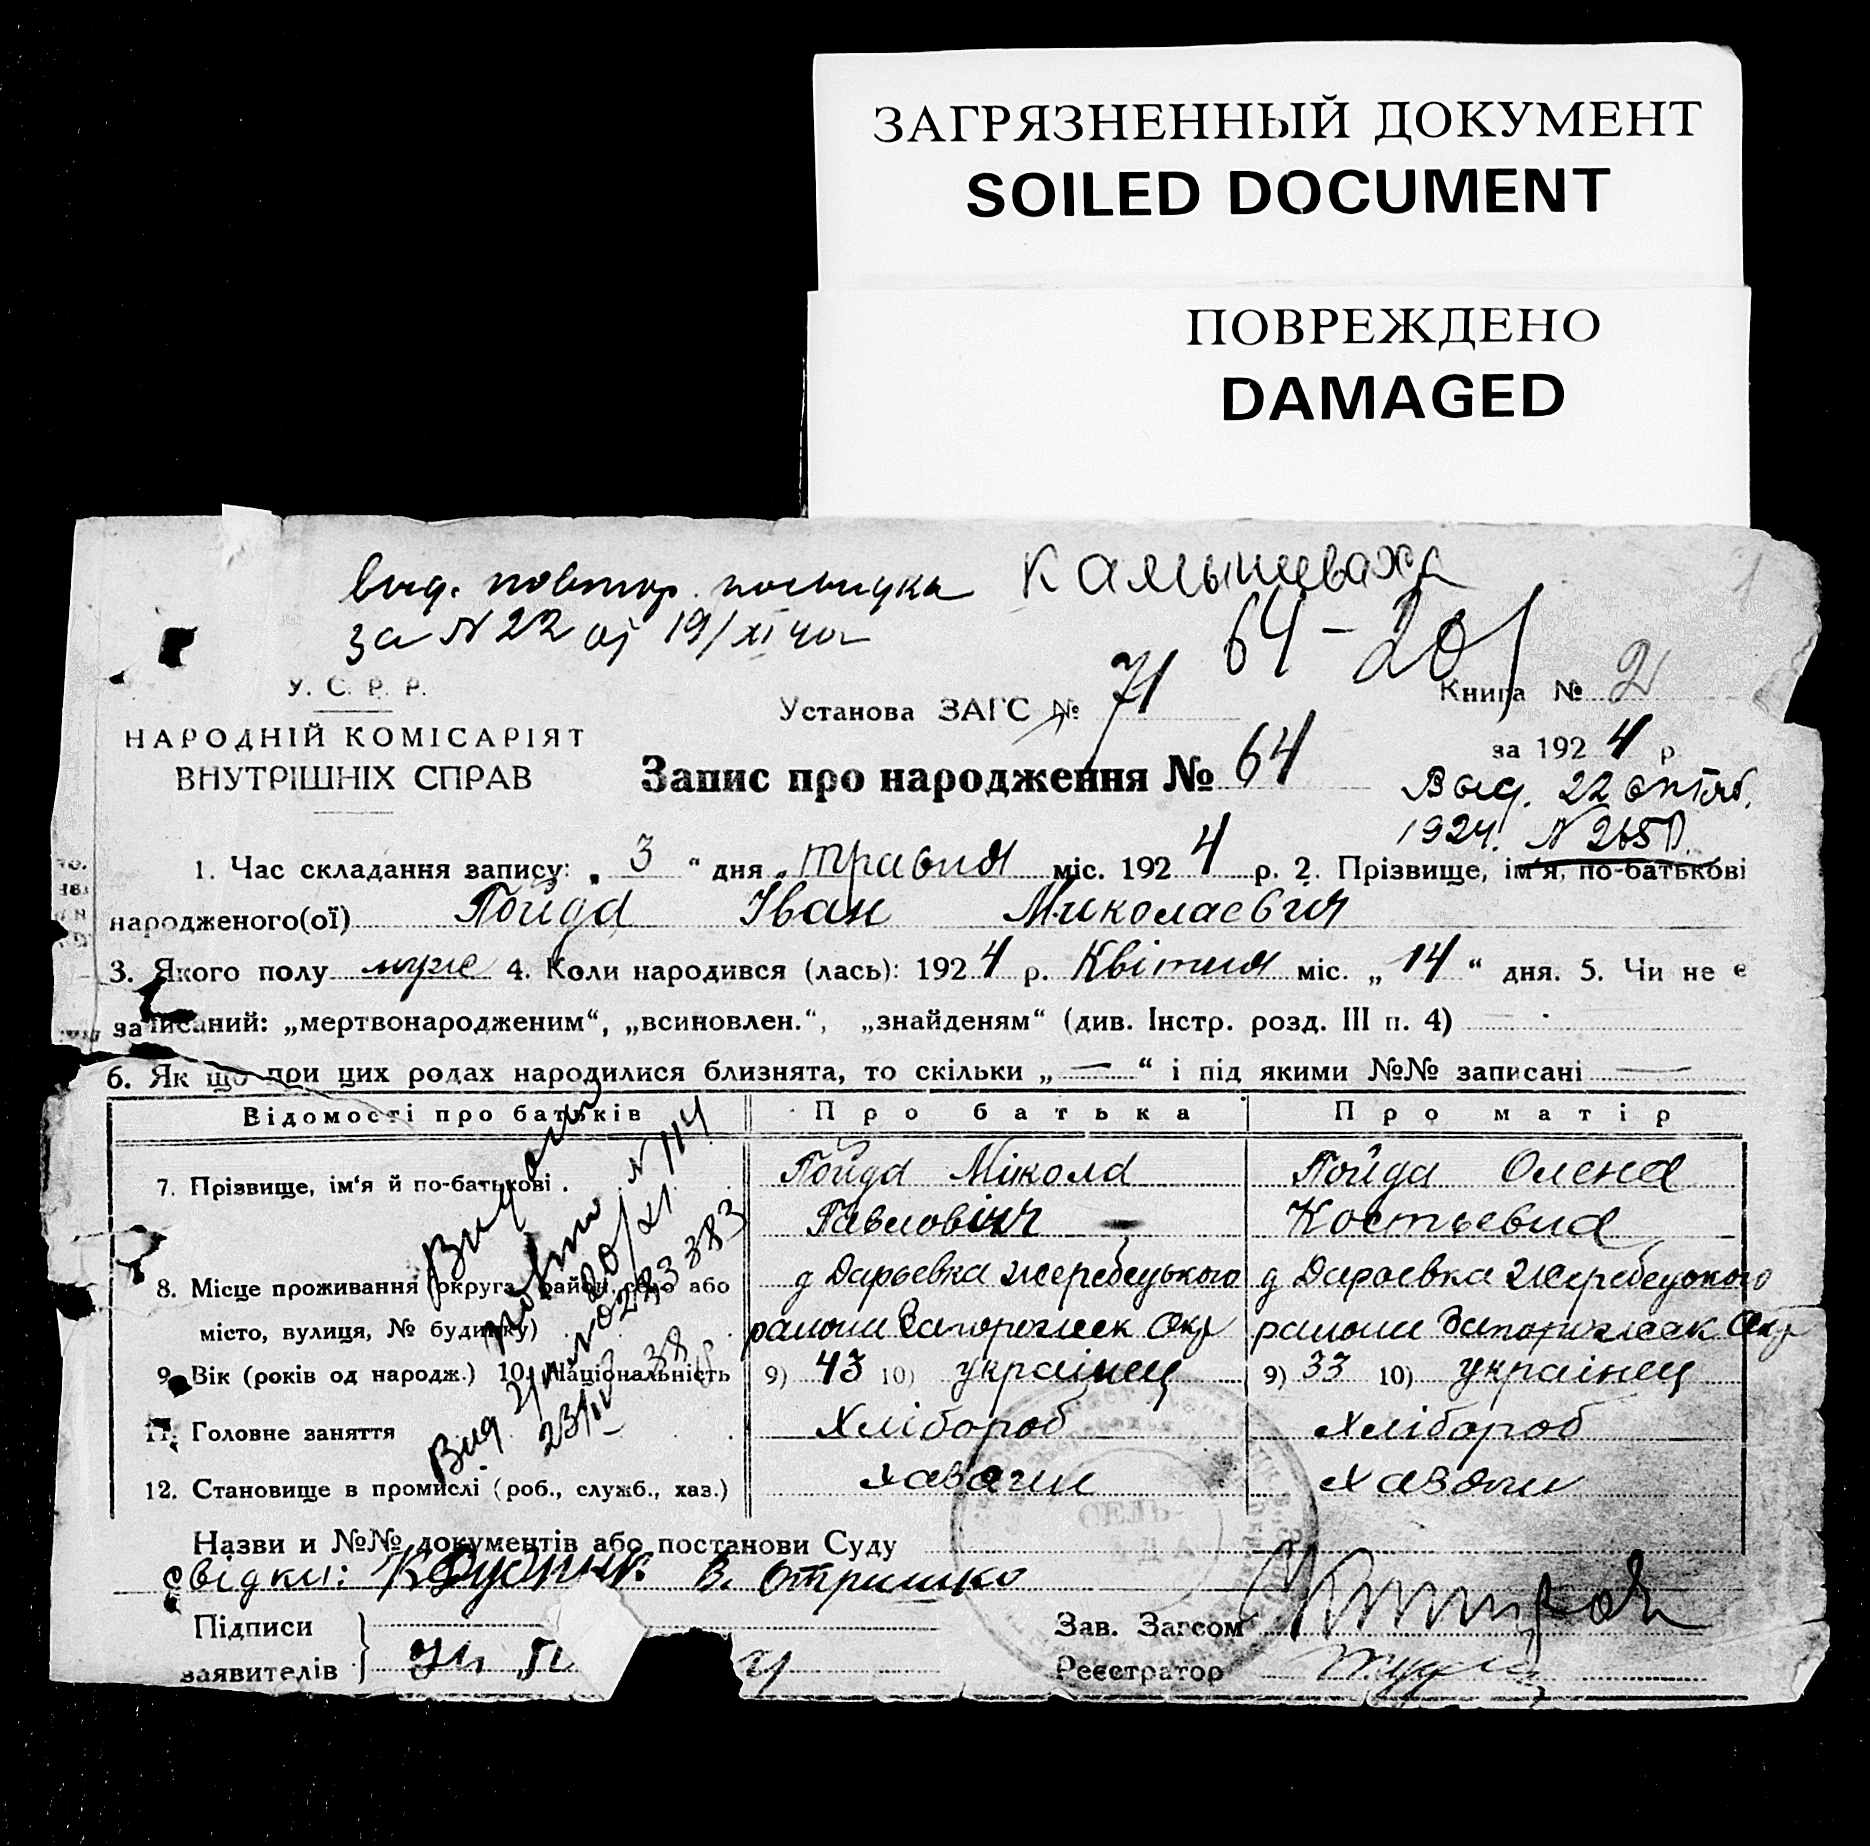 ЗАГРЯЗНЕННЫЙ ДОКУМЕНТ
SOILED DOCUMENT
ПОВРЕЖДЕНО
DAMAGED
вид. повтор. посвидка Камышеваха
за N 22 от 19/XI 40г
64-20
У. С. Р. Р.
НАРОДНІЙ КОМІСАРІЯТ
ВНУТРІШНІХ СПРАВ
Установа ЗАГС № 71
Книга № 2
за 1924 р
Запис про народження № 64
Выд. 22 октяб.
1924. N 265
1. Час складання запису: „ 3 “ дня „ травня міс. 1924 р. 2. Прізвище, ім'я, по-батькові
народженого(ої) Пойда Іван Миколаєвич
3. Якого полу муже 4. Коли народився (лась): 1924 р. Квітня міс. „ 14 “ дня. 5. Чи не є
записаний: „мертвонародженим“, „всиновлен.“, „знайденям“ (див. Інстр. розд. III п. 4)
6. Як що при цих родах народилися близнята, то скільки „ — “ і під якими №№ записані —
Відомості про батьків Про батька Про матір
7. Прізвище, ім'я й по-батькові . Пойда Мікола Пойда Олена
Павловіч Костьевна
8. Місце проживання (округа, район, село або д Дарьевка Жеребецького д Дарьевка Жеребецького
місто, вулиця, № будинку) району Запорожск Окр району Запорожск Окр
9. Вік (років од народж.) 10. Національність 9) 43 10) украінец 9) 33 10) украінец
11. Головне заняття Хлібороб Хлібороб
12. Становище в промислі (роб., служб., хаз.) хазяин хазяин
Видано
повтно N 114
20/XI
Вид 023383
23/IV 38
Назви и №№ документів або постанови Суду
свідки: В. Отришко
Підписи
заявителів
Зав. Загсом
Реєстратор
СЕЛЬ-